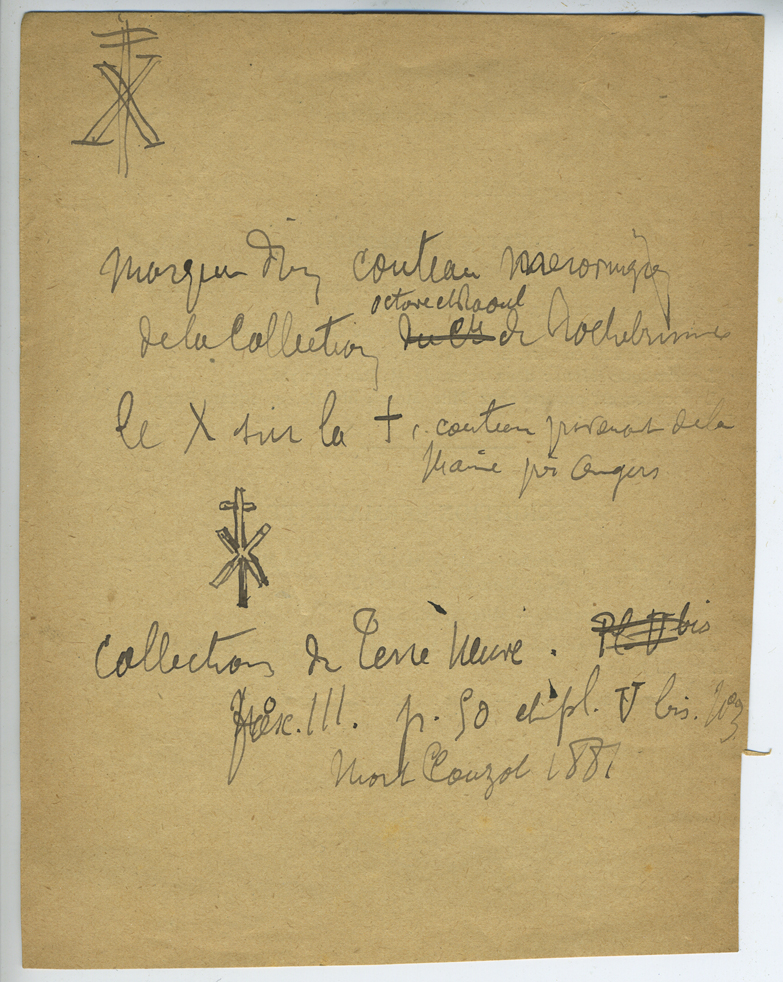 marque d'un couteau merovingien
octave et Raoul
de la Collection du Cte de Rochebrune
le X sur la +, couteau provenant de la
Maine près Angers
Collections de Terre Neuve. Pl. V bis
fasc. III. p. 50 et pl. V bis. No 3
Niort Clouzot 1881